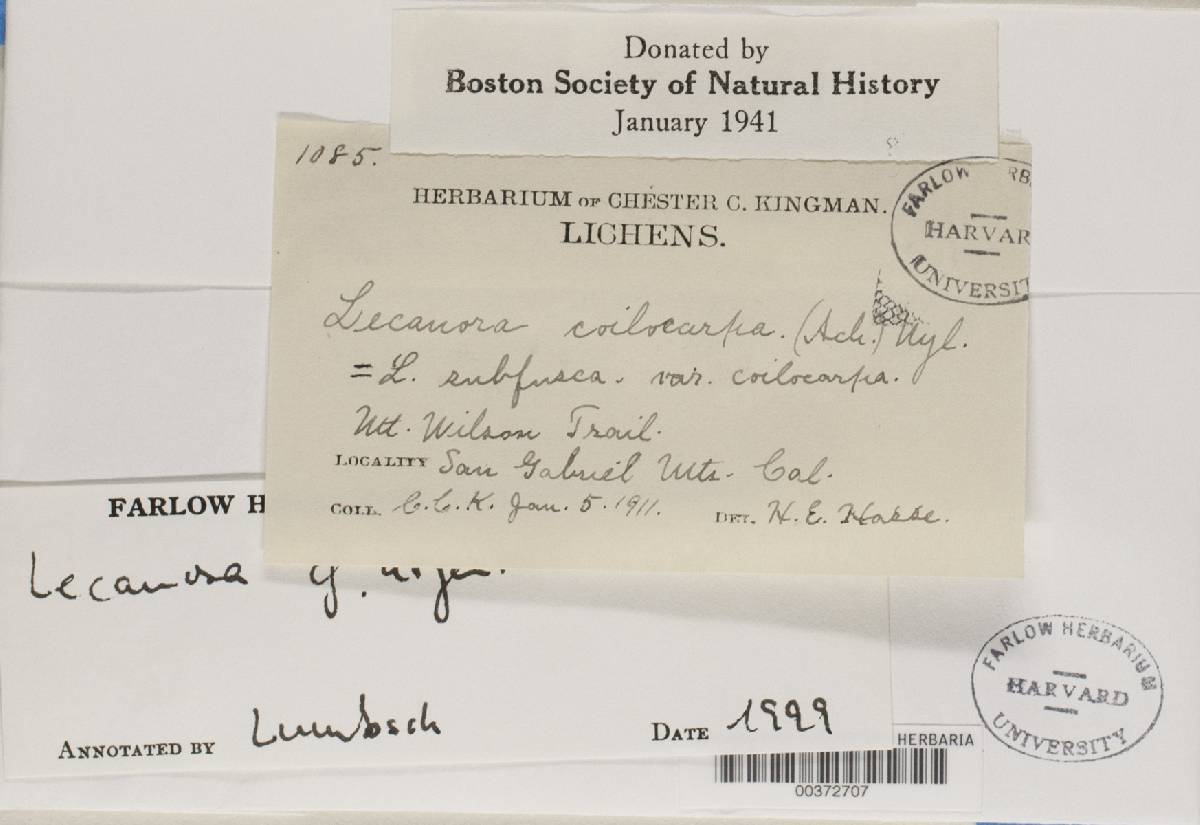 Donated by
Boston Society of Natural History
January 1941
1085.
HERBARIUM OF CHESTER C. KINGMAN.
LICHENS.
FARLOW HERB
HARVAR
UNIVERSIT
Lecanora coilocarpa. (Ach.) Nyl.
= L. subfusca. var. coilocarpa.
Mt. Wilson Trail.
LOCALITY San Gabriel Mts. Cal.
COLL. C.C.K. Jan. 5. 1911. DET. H. E. Hasse.
FARLOW H
Lecanora
FARLOW HERBARIUM
HARVARD
UNIVERSITY
ANNOTATED BY Lumbsch DATE 1999
HERBARIA
00372707